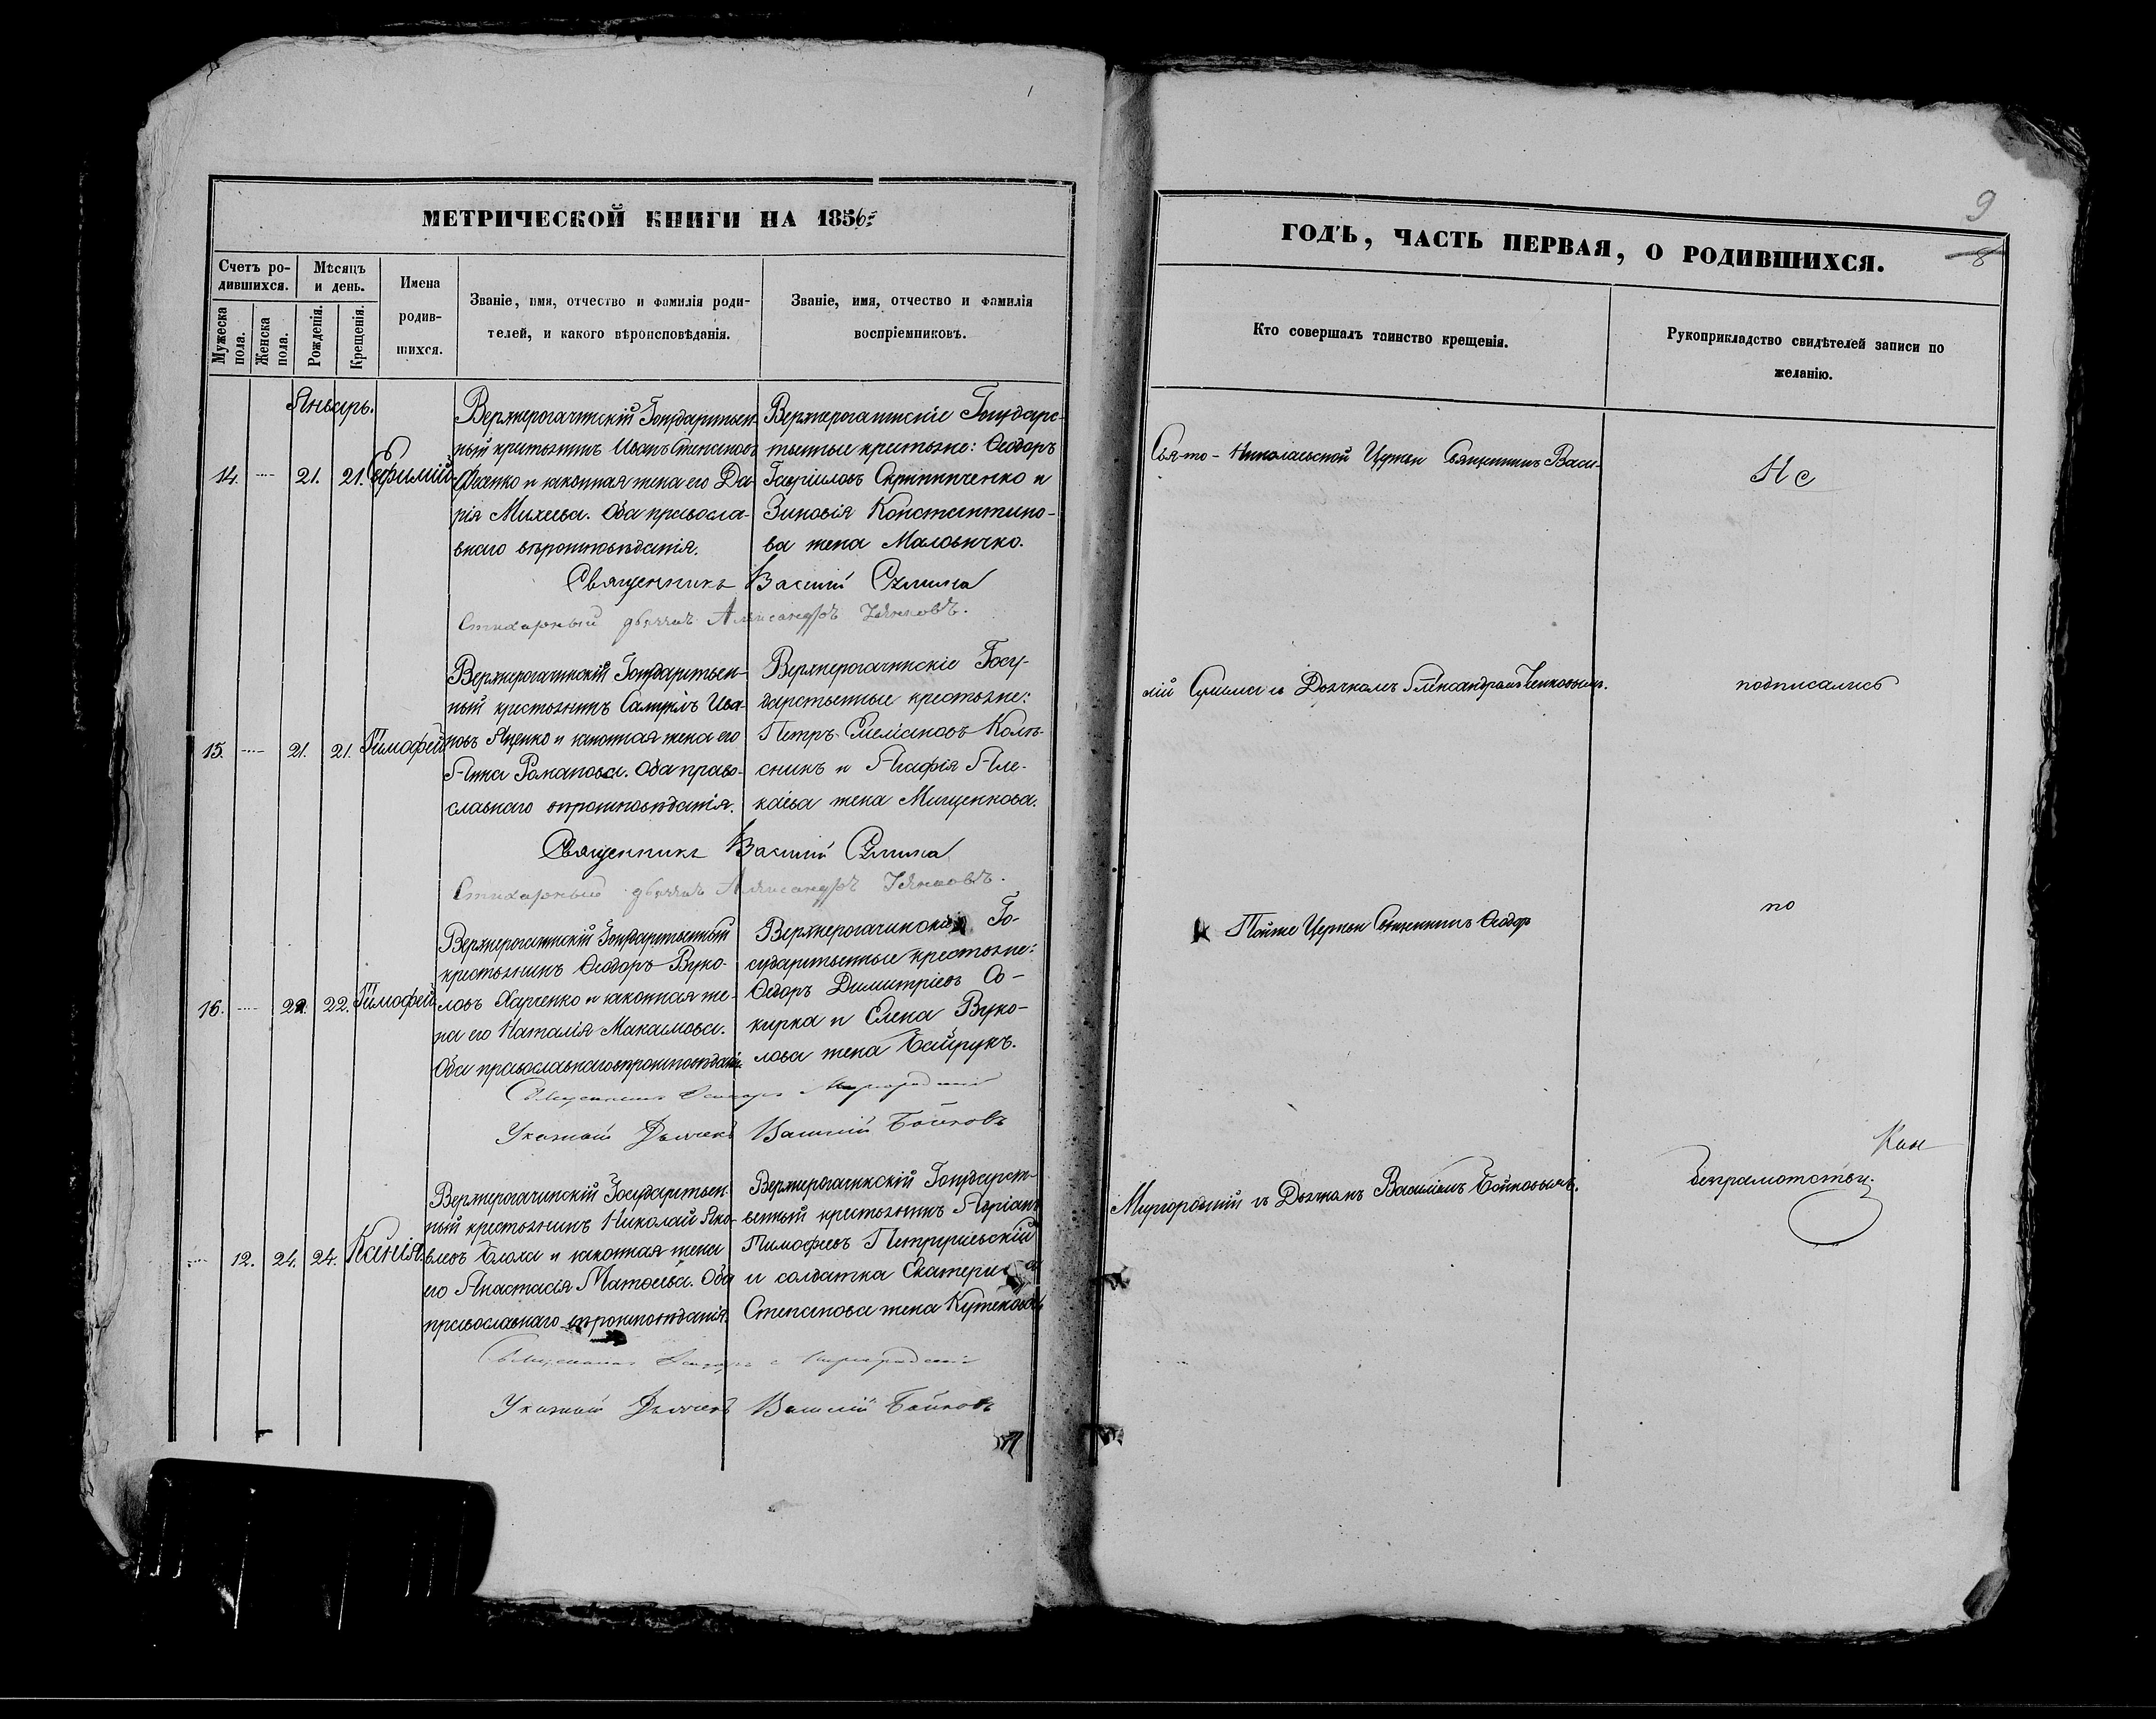 МЕТРИЧЕСКОЙ КНИГИ НА 1856:
Счетъ ро-
дившихся.
Мѣсяцъ
и день.
Мужеска
пола.
Женска
пола.
Рожденія.
Крещенія.
Имена
родив-
шихся.
Званіе, имя, отчество и фамилія роди-
телей, и какого вѣроисповѣданія.
Званіе, имя, отчество и фамилія
воспріемниковъ.
Январь.
14. 21. 21. Ефимій
Верхнерогачикскій Государствен-
ный крестьянинъ Иванъ Степановъ
Фесенко и законная жена его Да-
рія Михеева. Оба правосла-
внаго вѣроисповѣданія.
Верхнерогачикскіе Государс-
твенные крестьяне: Ѳеодоръ
Гавріиловъ Скрипниченко и
Зиновія Константино-
ва жена Маловичко.
Священникъ Василій
Стихарный дьячекъ Александръ
15. 21. 21. Тимофей
Верхнерогачикскій Государствен-
ный крестьянинъ Самуилъ Ива-
новъ Яценко и законная жена его
Анна Романова. Оба право-
славнаго вѣроисповѣданія.
Верхнерогачикскіе Госу-
дарственные крестьяне:
Петръ Емеліановъ Колѣ-
сникъ и Агафія Але-
каіева жена Мищенкова.
Священникъ Василій
Стихарный дьячекъ Александръ
16. 22. 22. Тимофей
Верхнерогачикскій Государственный
крестьянинъ Ѳеодоръ Вуко-
ловъ Харченко и законная же-
на его Наталія Максимова.
Оба православнаго вѣроисповѣданія
Верхнерогачикскіе Го-
сударственные крестьяне:
Ѳедоръ Димитріевъ Со-
кирка и Елена Вуко-
лова жена Байрукъ.
Священникъ Ѳеодоръ Миргородскій
Указный Дьячекъ Василій Бойковъ
12. 24. 24. Ксенія.
Верхнерогачикскій Государствен-
ный крестьянинъ Николай Яко-
влевъ Блоха и законная жена
его Анастасія Матѳеева. Оба
православнаго вѣроисповѣданія.
Верхнерогачикскій Государст-
венный крестьянинъ Адріанъ
Тимофеевъ Петрушевскій
и солдатка Екатерина
Степанова жена Кутекова
Священникъ Ѳеодоръ Миргородскій
Указный Дьячекъ Василій Бойковъ
9
8
ГОДЪ, ЧАСТЬ ПЕРВАЯ, О РОДИВШИХСЯ.
Кто совершалъ таинство крещенія.
Рукоприкладство свидѣтелей записи по
желанію.
Свято-Николаевской Церкви Священникъ Васи-
лій съ Дьячкомъ Александромъ
Тойже Церкви Священникъ Ѳеодоръ
Миргородскій съ Дьячкомъ Василіемъ Бойковымъ.
Не
подписались
по
безграмотству.